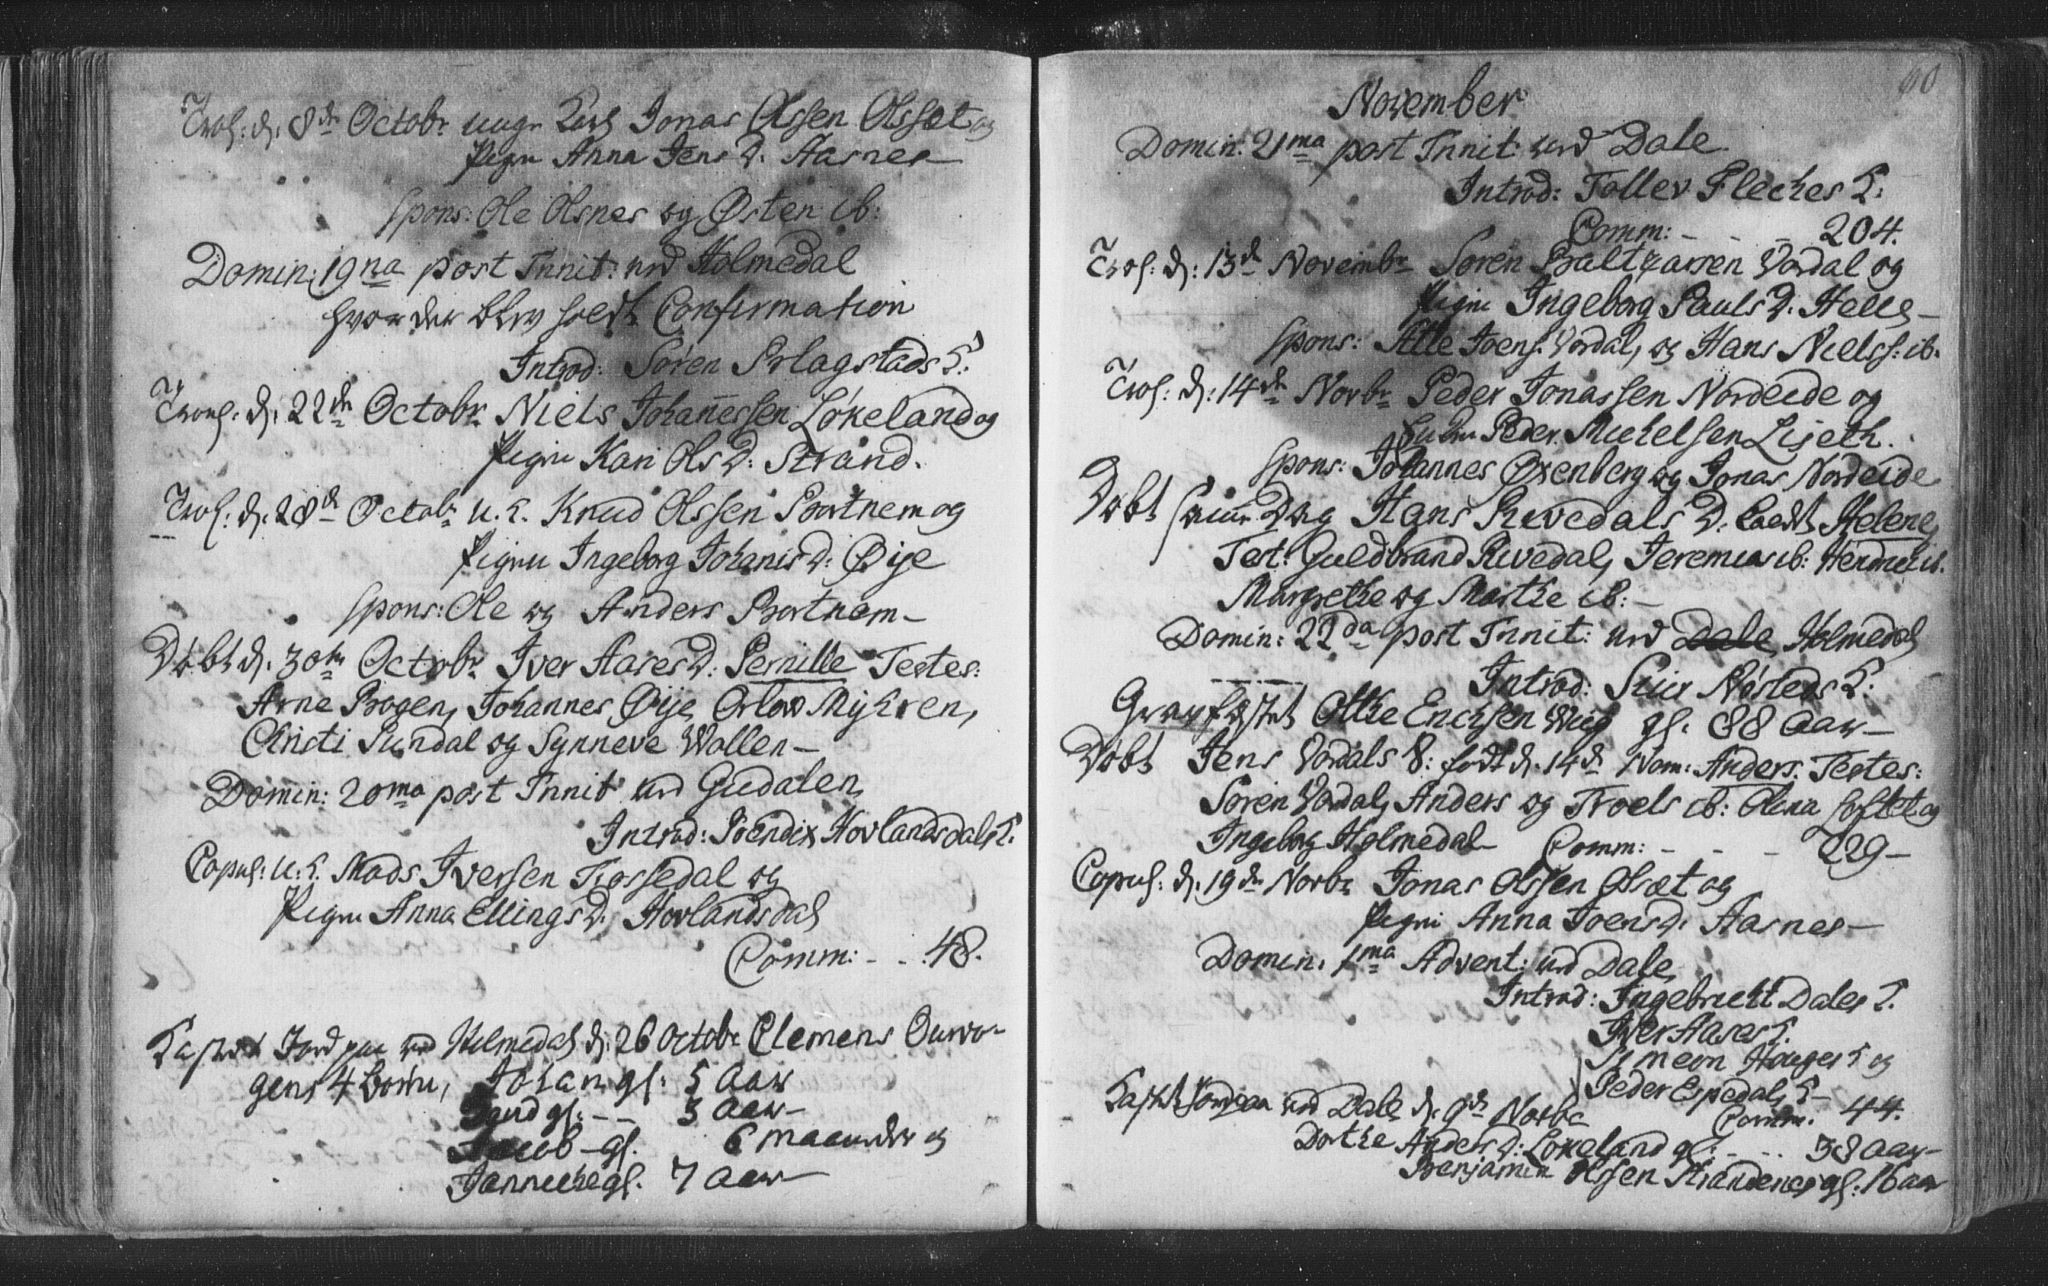 Trol: d. 8de Octobr ungr Karl Jonas Olssen Olssæt og
Pigen Anna Jens D. Aasnes
Spons: Ole Olsnes og Østen ib:
Domin: 19na post Trinit: ved Holmedal
hvor der blev holdt Confirmation
Introd: Søren Erlagstads K:
Trol: d. 22de Octobr Niels Johannessen Løkeland og
Pigen Kari Ols D: Strand.
Trol: d. 28de Octobr u. K. Knud Olssen Bortnem og
Pigen Ingeborg Johanis D: Øije
Spons: Ole og Anders Bortnem
Døbt d. 30te Octobr Iver Aares D: Pernille Testes:
Arne Bogen, Johannes Øije, Orlow Myhren,
Christi Sundal og Synneve Wollen
Domin: 20ma post Trinit ved Gudalen,
Introd: Hovlandsdals K.
Copul: u. K. Mads Iversen Tossedal og
Pigen Anna Ellings D. Hovlandsdal
Comm: - - 48.
Kastet Jord paa ved Holmedal d: 26 Octobr Clemens Qurvo-
gens 4 Børn, Johan gl: 5 Aar
gl: - - 3 Aar
Jacob gl. 6 maaneder og
Janneche gl. 7 Aar
60
November
Domin: 21ma post Trinit: ved Dale
Introd: Tollev Fleches K:
Comm: - - - 204.
Trol: d: 13de Novembr Søren Baltzarsen Vardal og
Pigen Ingeborg Pauls D. Helle
Spons: Atle Joens. Vardal, og Hans Nielss: ib.
Trol: d: 14de Novbr Peder Jonassen Nordeide og
Peder Michelsen Liseth.
Spons: Johannes Oxenberg og Jonas Nordeide
Døbt samme Dag Hans Rivedals D. kaldt Helene,
Test: Guldbrand Rivedal, Jeremias ib: Henrich ib.
Margrethe og Marthe ib:
Domin: 22da post Trinit: ved Dale Holmedal
Introd: Siur Nøsteds K:
Gravfæstet Otthe Erichsen Wiig gl. 88 Aar
Døbt Jens Vardals S: født d. 14de Nom: Anders. Testes:
Søren Vardal, Anders og Troels ib: Olena Loftet og
Ingeborg Holmedal Comm: - - - 229
Copul: d. 19de Novbr Jonas Olssen Olsæt og
Pigen Anna Joens D. Aasnes
Domin: 1ma Advent: ved Dale,
Introd: Ingebriett Dales K.
Iver Aares K.
Simeon Hauges K og
Peder Espedals K
Comm. 44.
Kastet Jord paa ved Dale d. 9de Novbr
Dorthe Anders D: Løkeland gl: - - - 38 Aar
Benjamin Olssen Strandenes gl: 16 aar